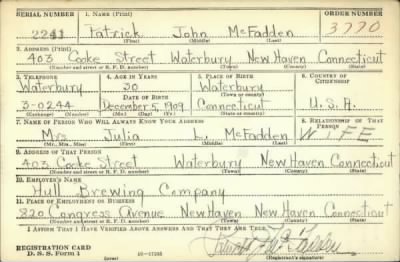 SERIAL NUMBER 1. NAME (Print) ORDER NUMBER
2241 Patrick John McFadden 3770
(First) (Middle) (Last)
2. ADDRESS (Print)
403 Cooke Street Waterbury New Haven Connecticut
(Number and street or R. F. D. number) (Town) (County) (State)
3. TELEPHONE 4. AGE IN YEARS 5. PLACE OF BIRTH 6. COUNTRY OF CITIZENSHIP
Waterbury 30 Waterbury
DATE OF BIRTH (Town or county)
3-0244 December 5, 1909 Connecticut U.S.A.
(Exchange) (Number) (Mo.) (Day) (Yr.) (State or country)
7. NAME OF PERSON WHO WILL ALWAYS KNOW YOUR ADDRESS 8. RELATIONSHIP OF THAT PERSON
Mrs. Julia L. McFadden WIFE
(Mr., Mrs., Miss) (First) (Middle) (Last)
9. ADDRESS OF THAT PERSON
403 Cooke Street Waterbury New Haven Connecticut
(Number and street or R. F. D. number) (Town) (County) (State)
10. EMPLOYER'S NAME
Hull Brewing Company
11. PLACE OF EMPLOYMENT OR BUSINESS
820 Congress Avenue New Haven New Haven Connecticut
(Number and street or R. F. D. number) (Town) (County) (State)
I AFFIRM THAT I HAVE VERIFIED ABOVE ANSWERS AND THAT THEY ARE TRUE.
REGISTRATION CARD
D. S. S. Form 1 (over) 16-17105 (Registrant's signature)